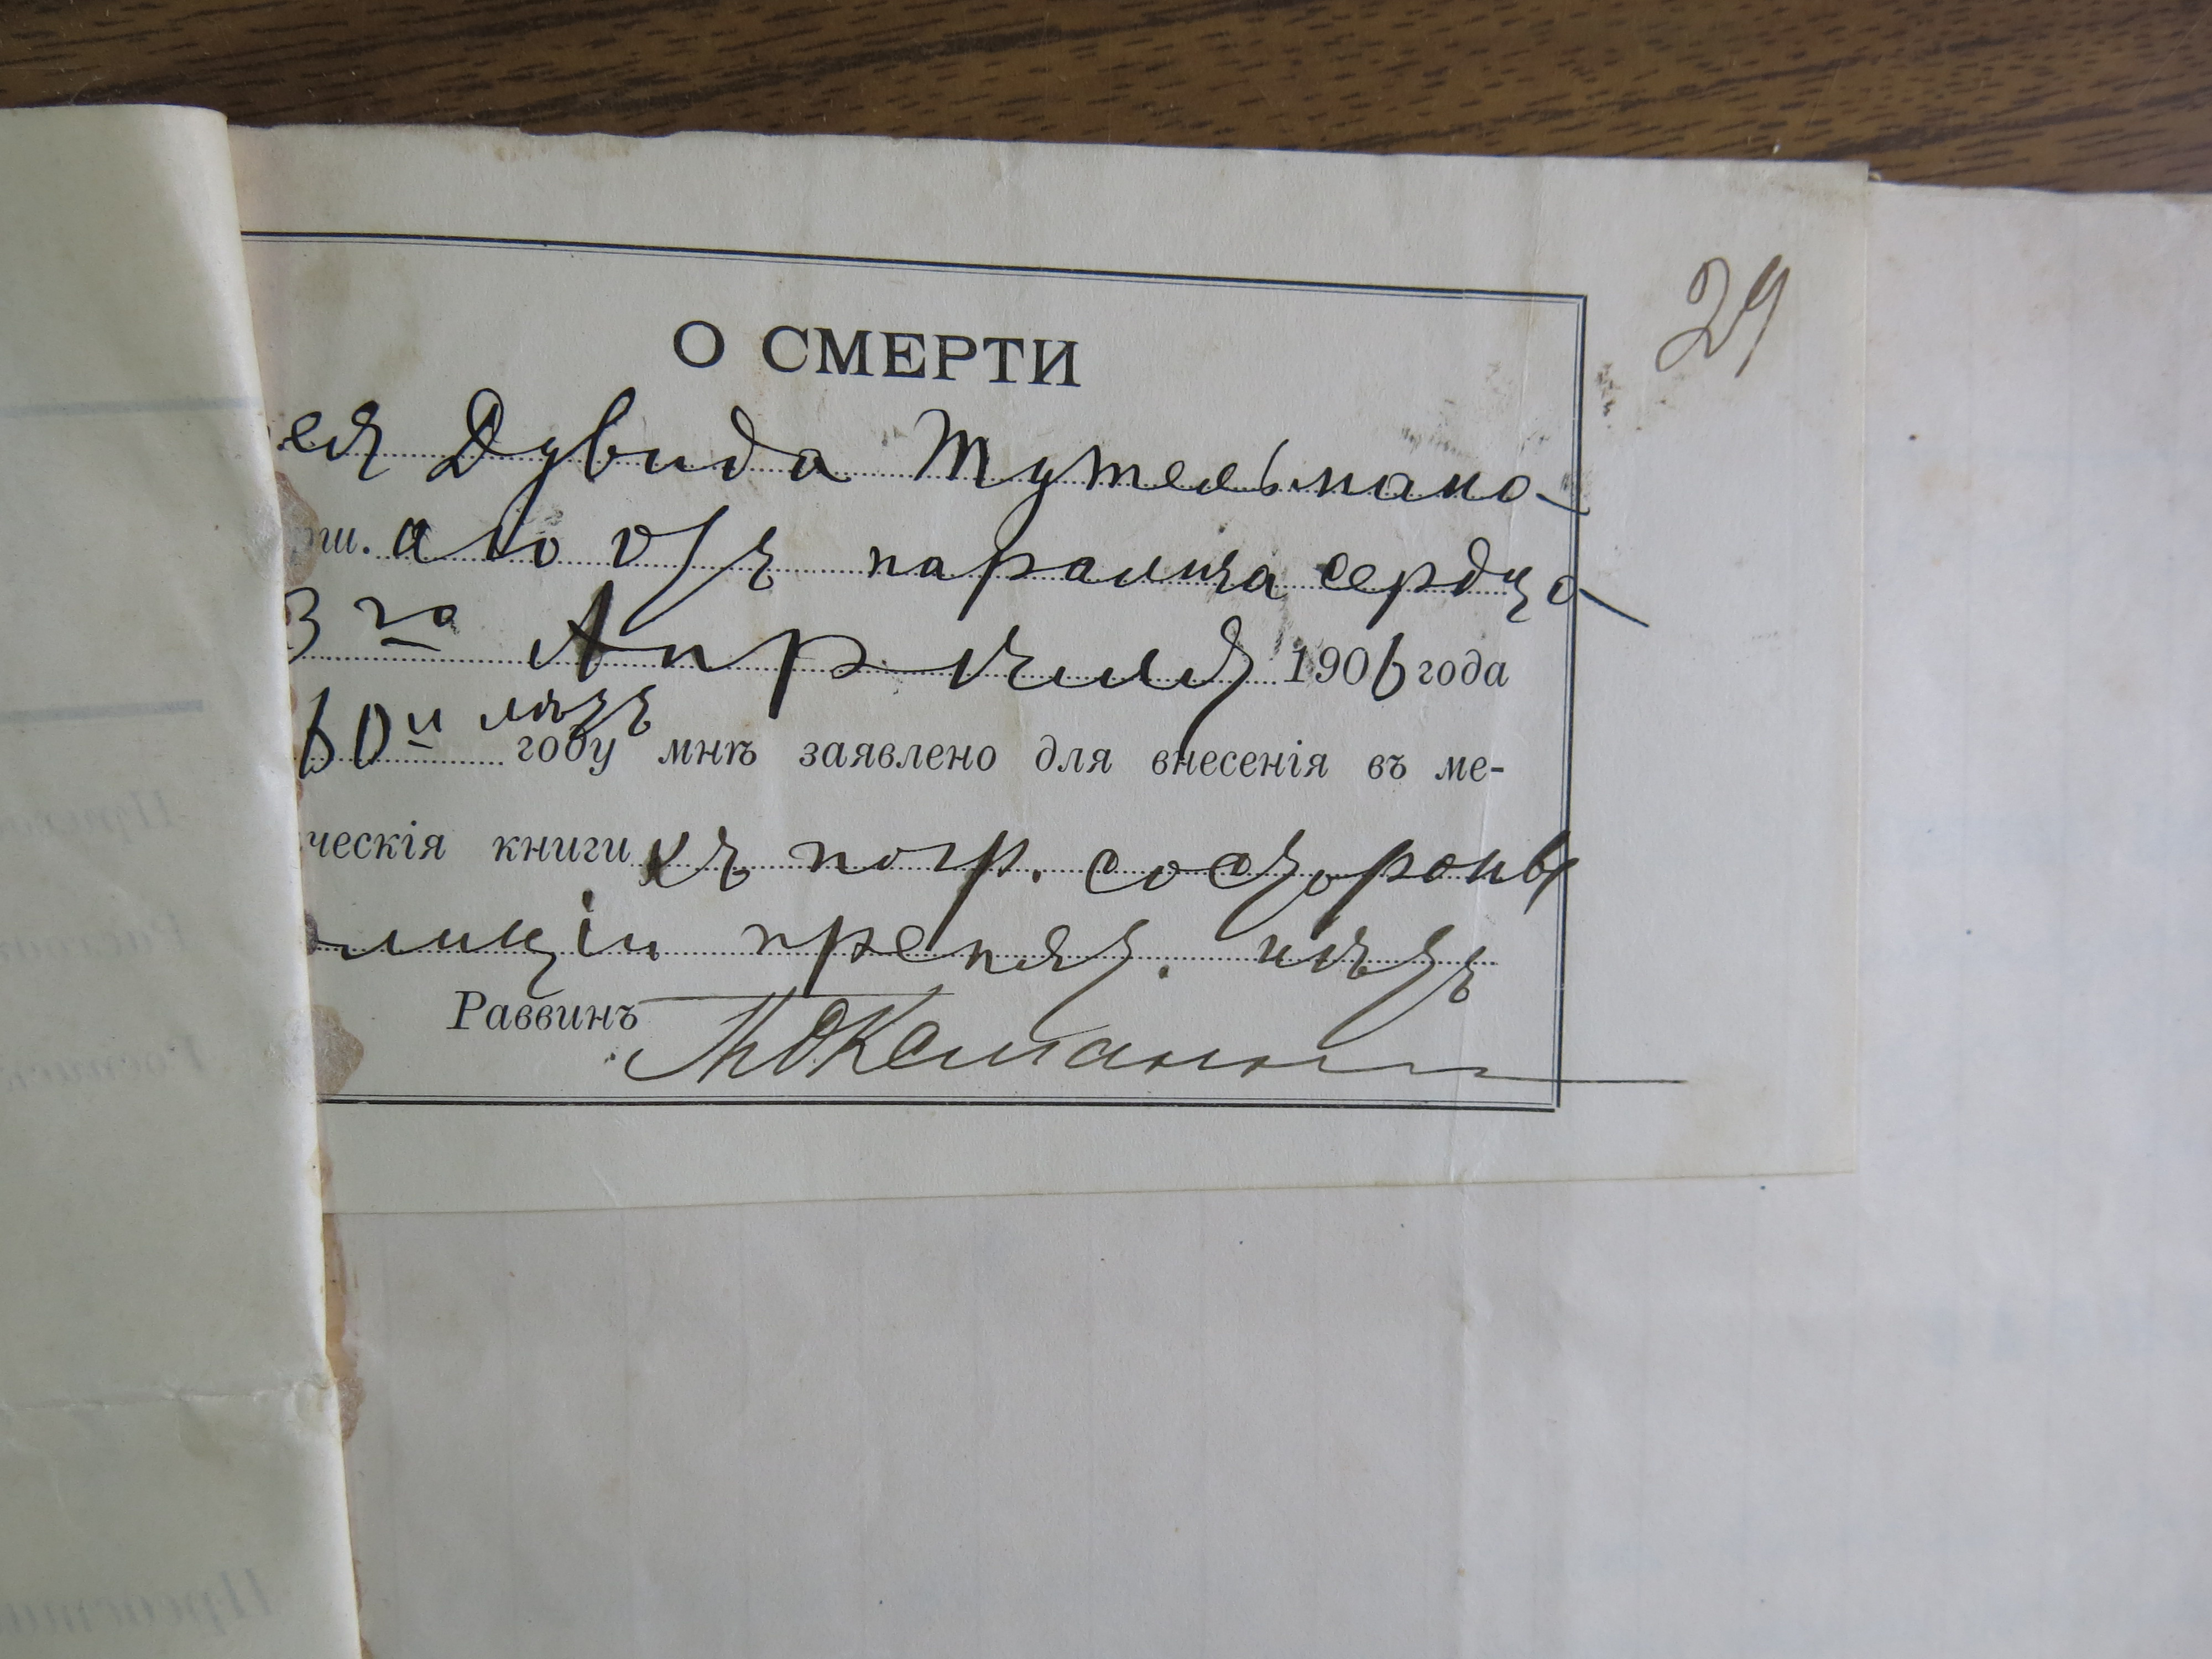 29
О СМЕРТИ
ея Дувида Тутельмана
рш. аго отъ паралича сердца
3 го Апрѣля 1906 года
60 и лѣтъ
году мнѣ заявлено для внесенія въ ме-
ческія книги къ погр. со стороны
олиціи препят. нѣтъ
Раввинъ